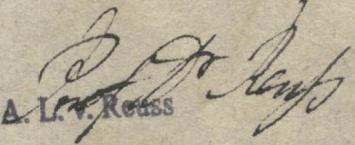 Prof Dr Reuß
A. L. v. Reuss